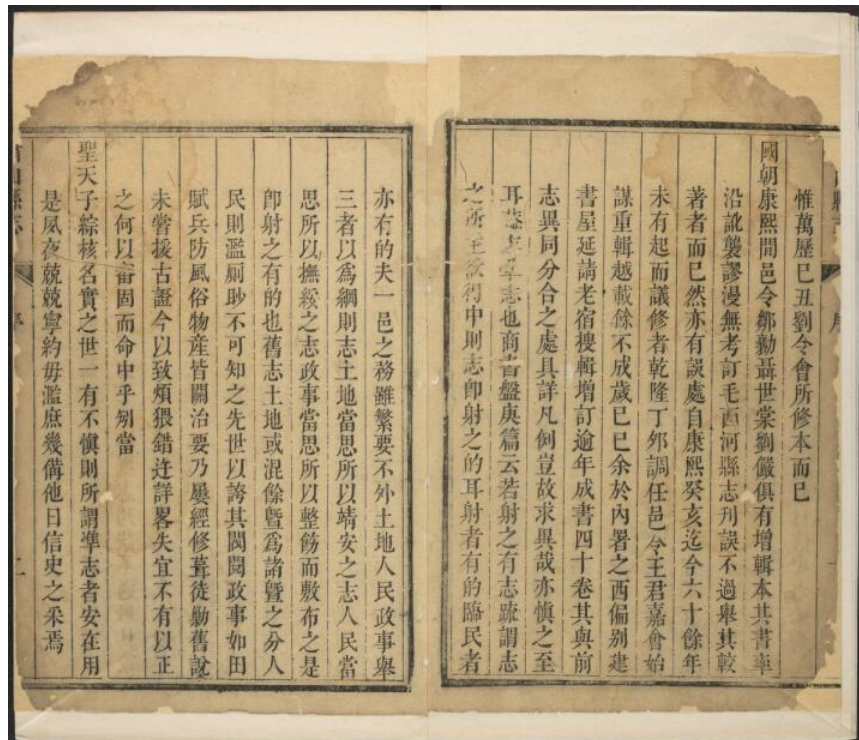 惟萬歷巳丑劉令會所修本而巳
國朝康熙間邑令鄒勷聶世棠劉儼俱有增輯本其書率
沿訛襲謬漫無考訂毛西河縣志刊誤不過舉其較
著者而巳然亦有誤處自康熙癸亥迄今六十餘年
未有起而議修者乾隆丁夘調任邑令王君嘉會始
謀重輯越載餘不成歲巳巳余於內署之西偏别建
書屋延請老宿搜輯增訂逾年成書四十卷其與前
志異同分合之處具詳凡例豈故求異哉亦慎之至
耳志也商書盤庚篇云若射之有志疏謂志
之所主欲得中則志卽射之的耳射者有的臨民者
亦有的夫一邑之務雖繁要不外土地人民政事舉
三者以爲綱則志土地當思所以靖安之志人民當
思所以撫綏之志政事當思所以整飭而敷布之是
卽射之有的也舊志土地或混餘曁爲諸曁之分人
民則濫厠眇不可知之先世以誇其閥閱政事如田
賦兵防風俗物產皆關治要乃屢經修葺徒勦舊說
未嘗援古證今以致煩猥錯迕詳畧失宜不有以正
之何以審固而命中乎矧當
聖天子綜核名實之世一有不慎則所謂凖志者安在用
是夙夜兢兢寧約毋濫庶幾備他日信史之采焉
山縣志
序
二